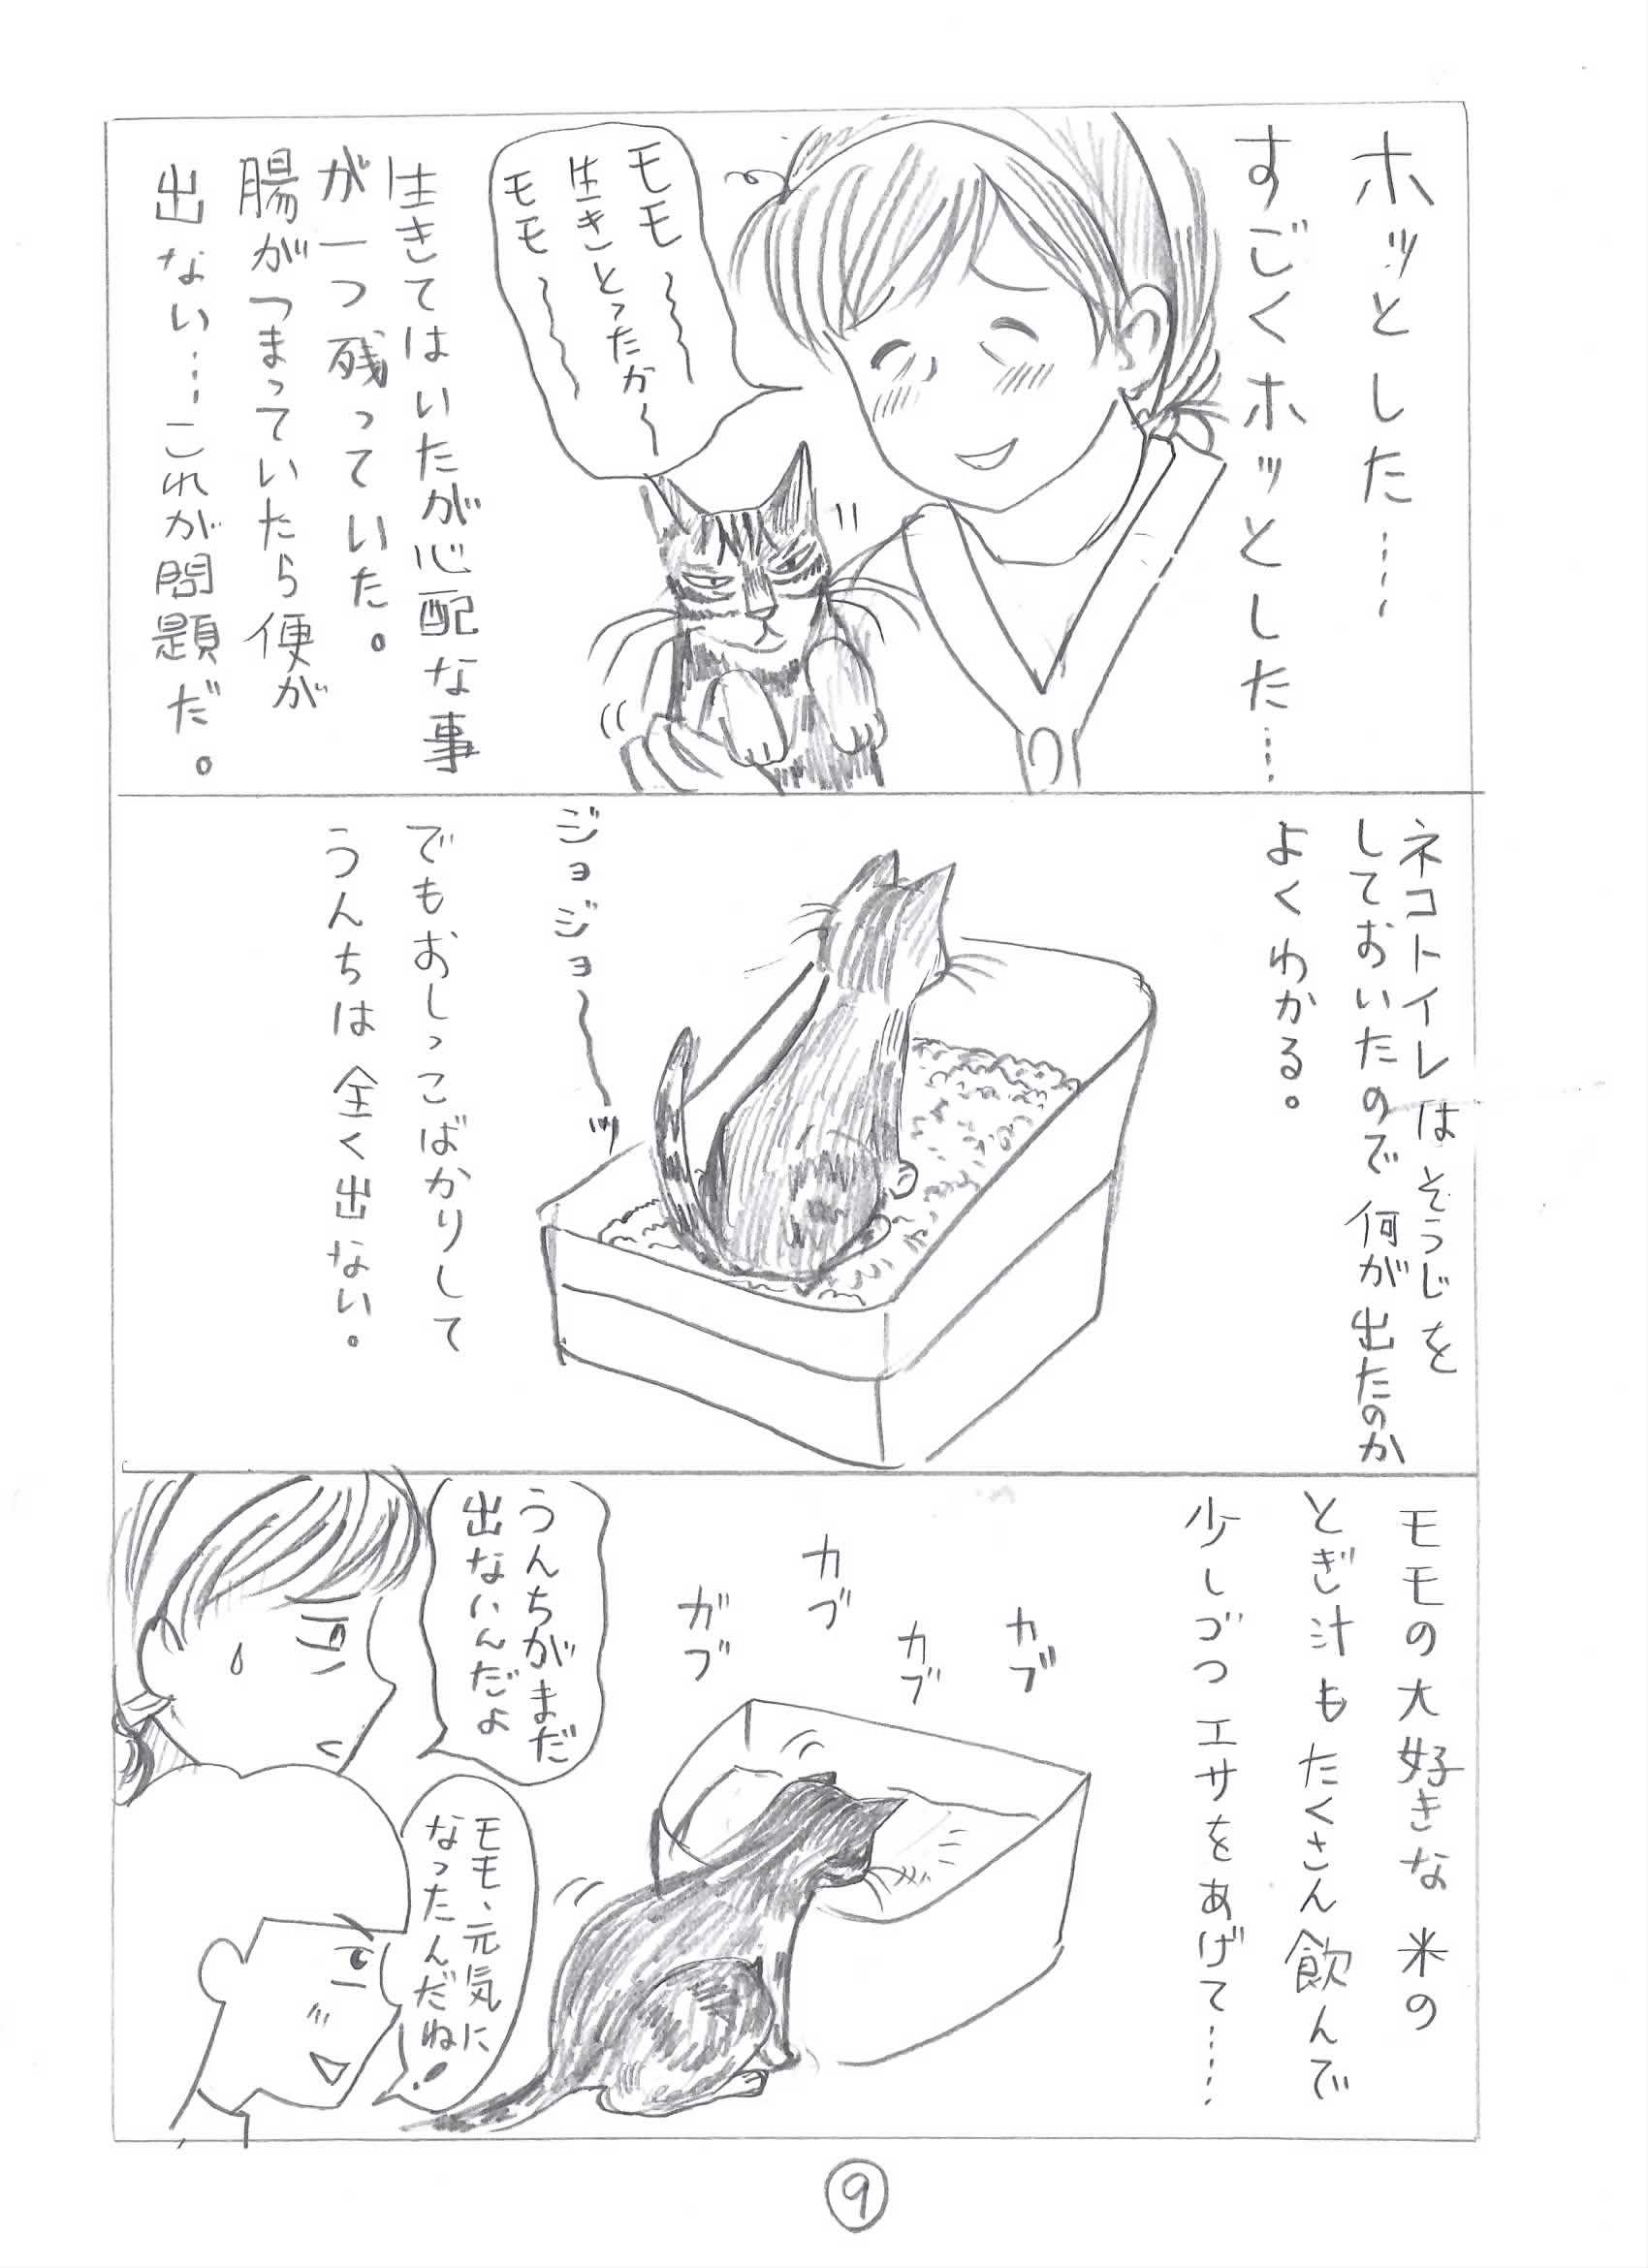 ホッとした……
すごくホッとした……
モモ〜〜
生きとったか〜
モモ〜〜
生きてはいたが心配な事
が一つ残っていた。
腸がつまっていたら便が
出ない……これが問題だ。
ネコトイレはそうじを
しておいたので何が出たのか
よくわかる。
ジョジョ〜〜ッ
でもおしっこばかりして
うんちは全く出ない。
モモの大好きな米の
とぎ汁もたくさん飲んで
少しづつエサをあげて……
カブ
カブ
カブ
ガブ
うんちがまだ
出ないんだよ
モモ、元気に
なったんだね!
⑨